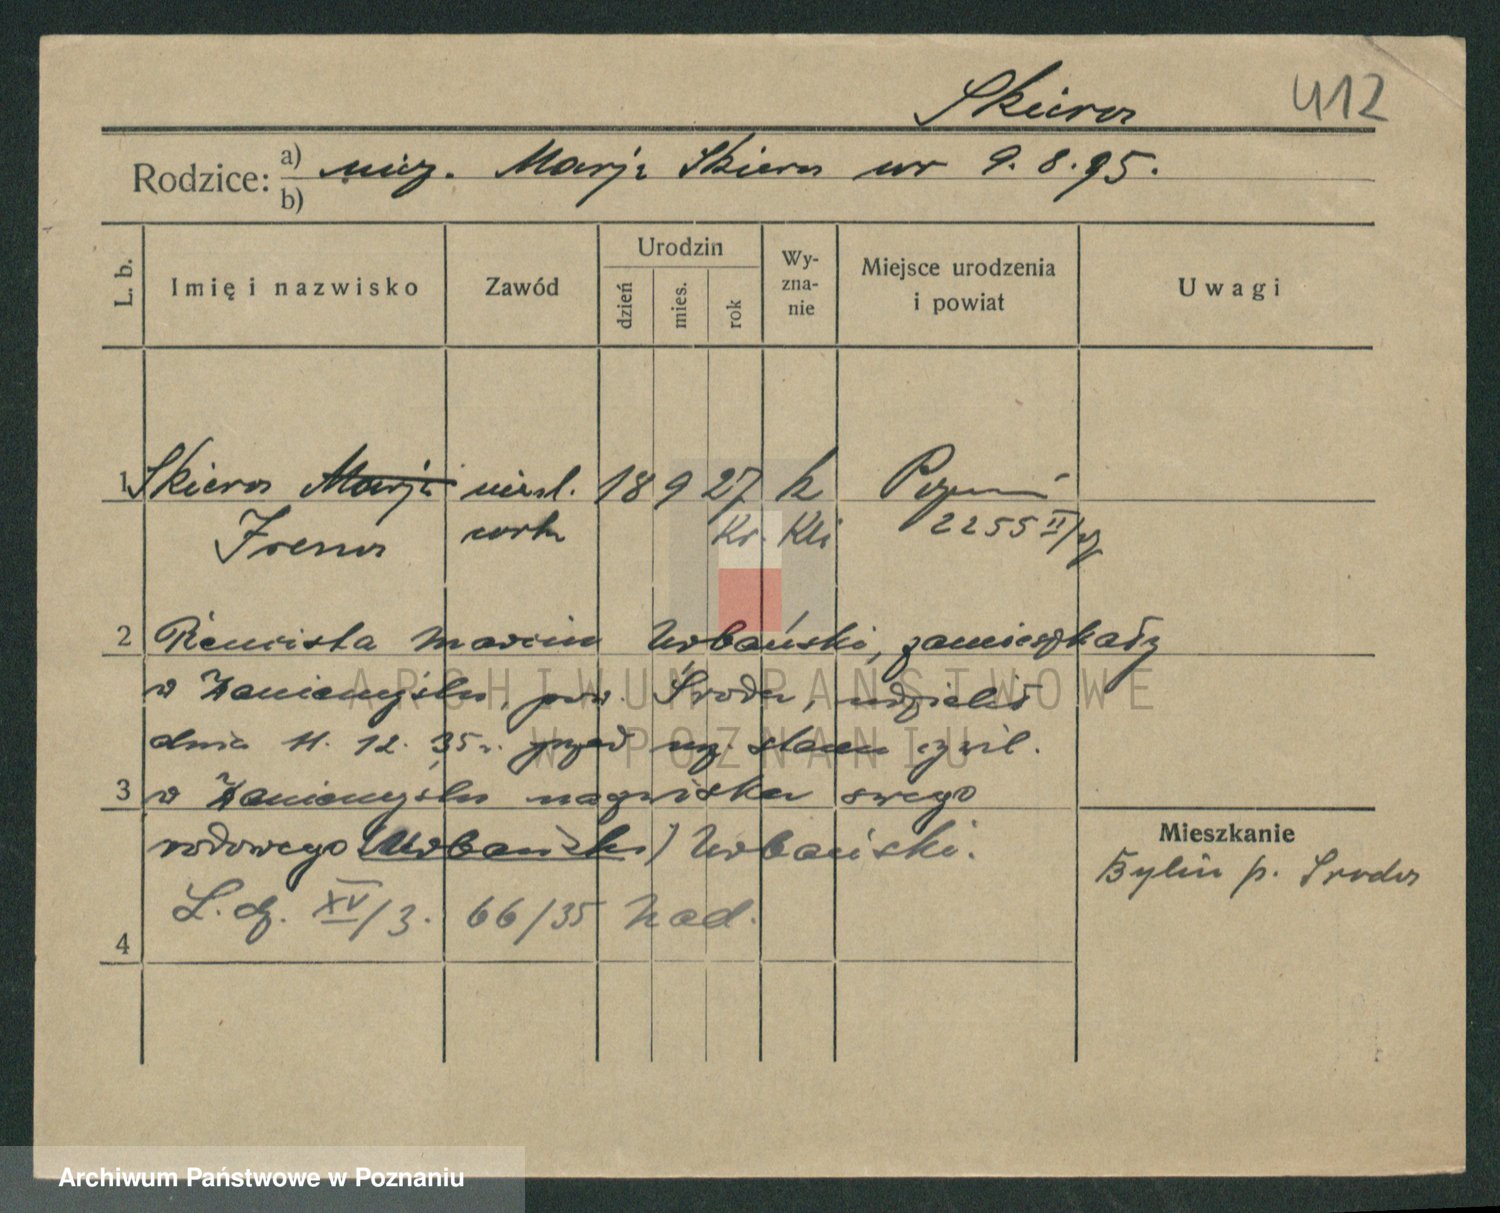 Skiera 412
Rodzice: a) niez. Marja Skiera ur 9.8.95.
b)
L. b. Imię i nazwisko Zawód Urodzin dzień mies. rok Wy-zna-nie Miejsce urodzenia i powiat Uwagi
1 Skiera Marja nieśl. 18 9 27 k Poznań
Irena córka Kr. Kli 2255 II/
2 Rencista Marcin Urbański, zamieszkały
w Zaniemyślu, pow. Środa, udzielił
dnia 11. 12. 35 r. przed urz. stanu cywil.
3 w Zaniemyślu nazwiska swego
rodowego (Urbański) Urbański.
Mieszkanie
Bylin p. Środa
L. dz. XV/3. 66/35 Nad.
4
ARCHIWUM PAŃSTWOWE
W POZNANIU
Archiwum Państwowe w Poznaniu